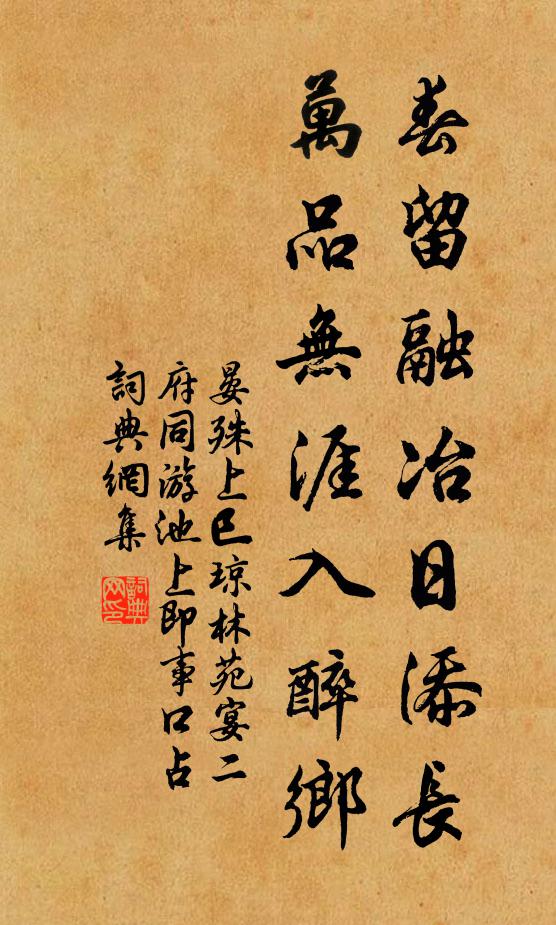 春留融冶日添長
萬品無涯入醉鄉
晏殊上巳瓊林苑宴二
府同游池上即事口占
詞典網集
詞典
网印